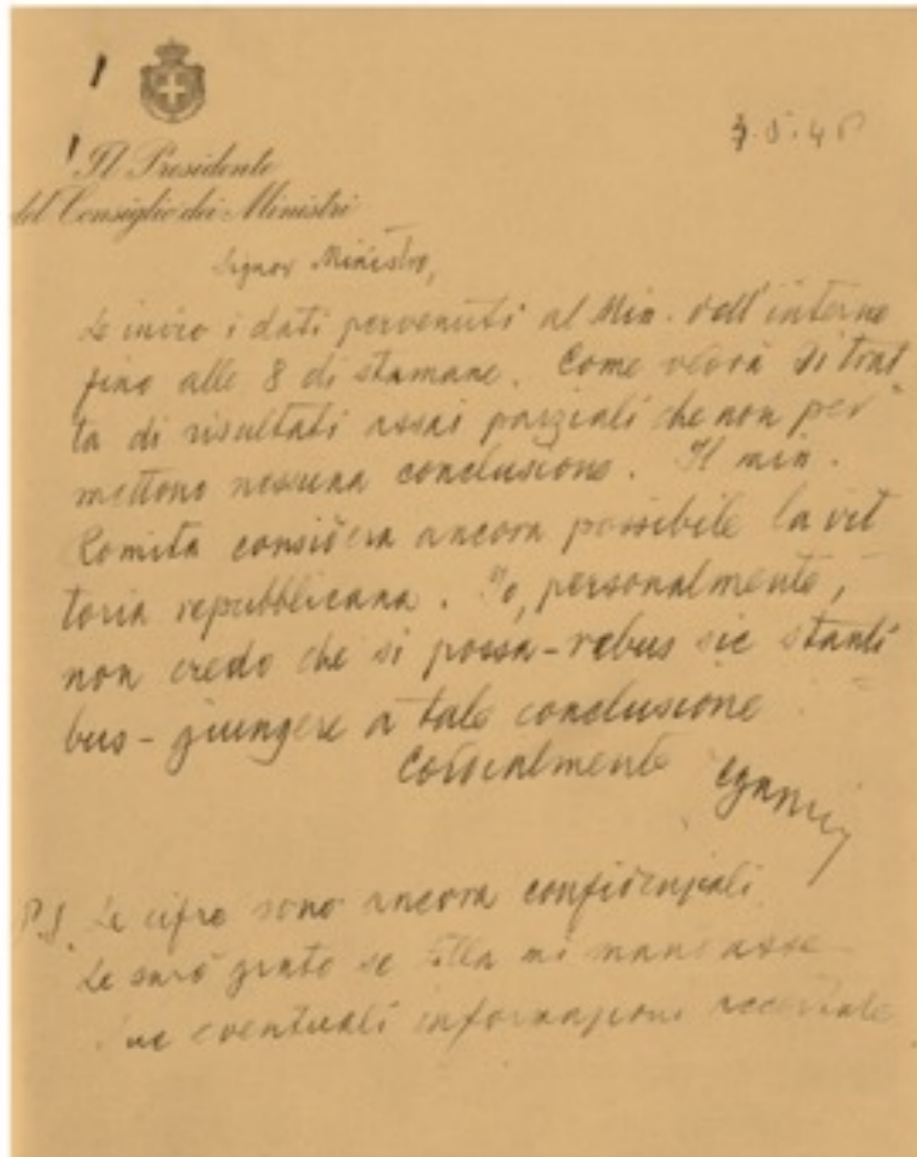 Il Presidente
del Consiglio dei Ministri
Signor Ministro,
Le invio i dati pervenuti al Min. dell'interno
fino alle 8 di stamane. Come vedrà si trat
ta di risultati assai parziali che non per
mettono nessuna conclusione. Il min.
Romita considera ancora possibile la vit
toria repubblicana. Io, personalmente,
non credo che si possa - rebus sic stanti
bus - giungere a tale conclusione
Cordialmente
P.S. Le cifre sono ancora confidenziali.
Le sarò grato se Ella mi mandasse
Sue eventuali informazioni accertate